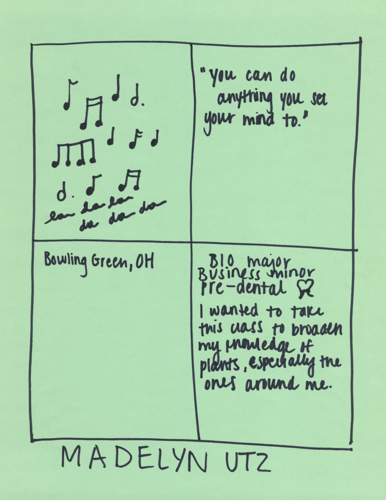 "you can do
anything you set
your mind to."
la la la
da da da
Bowling Green, OH
BIO major
Business minor
Pre-dental
I wanted to take
this class to broaden
my knowledge of
plants, especially the
ones around me.
MADELYN UTZ